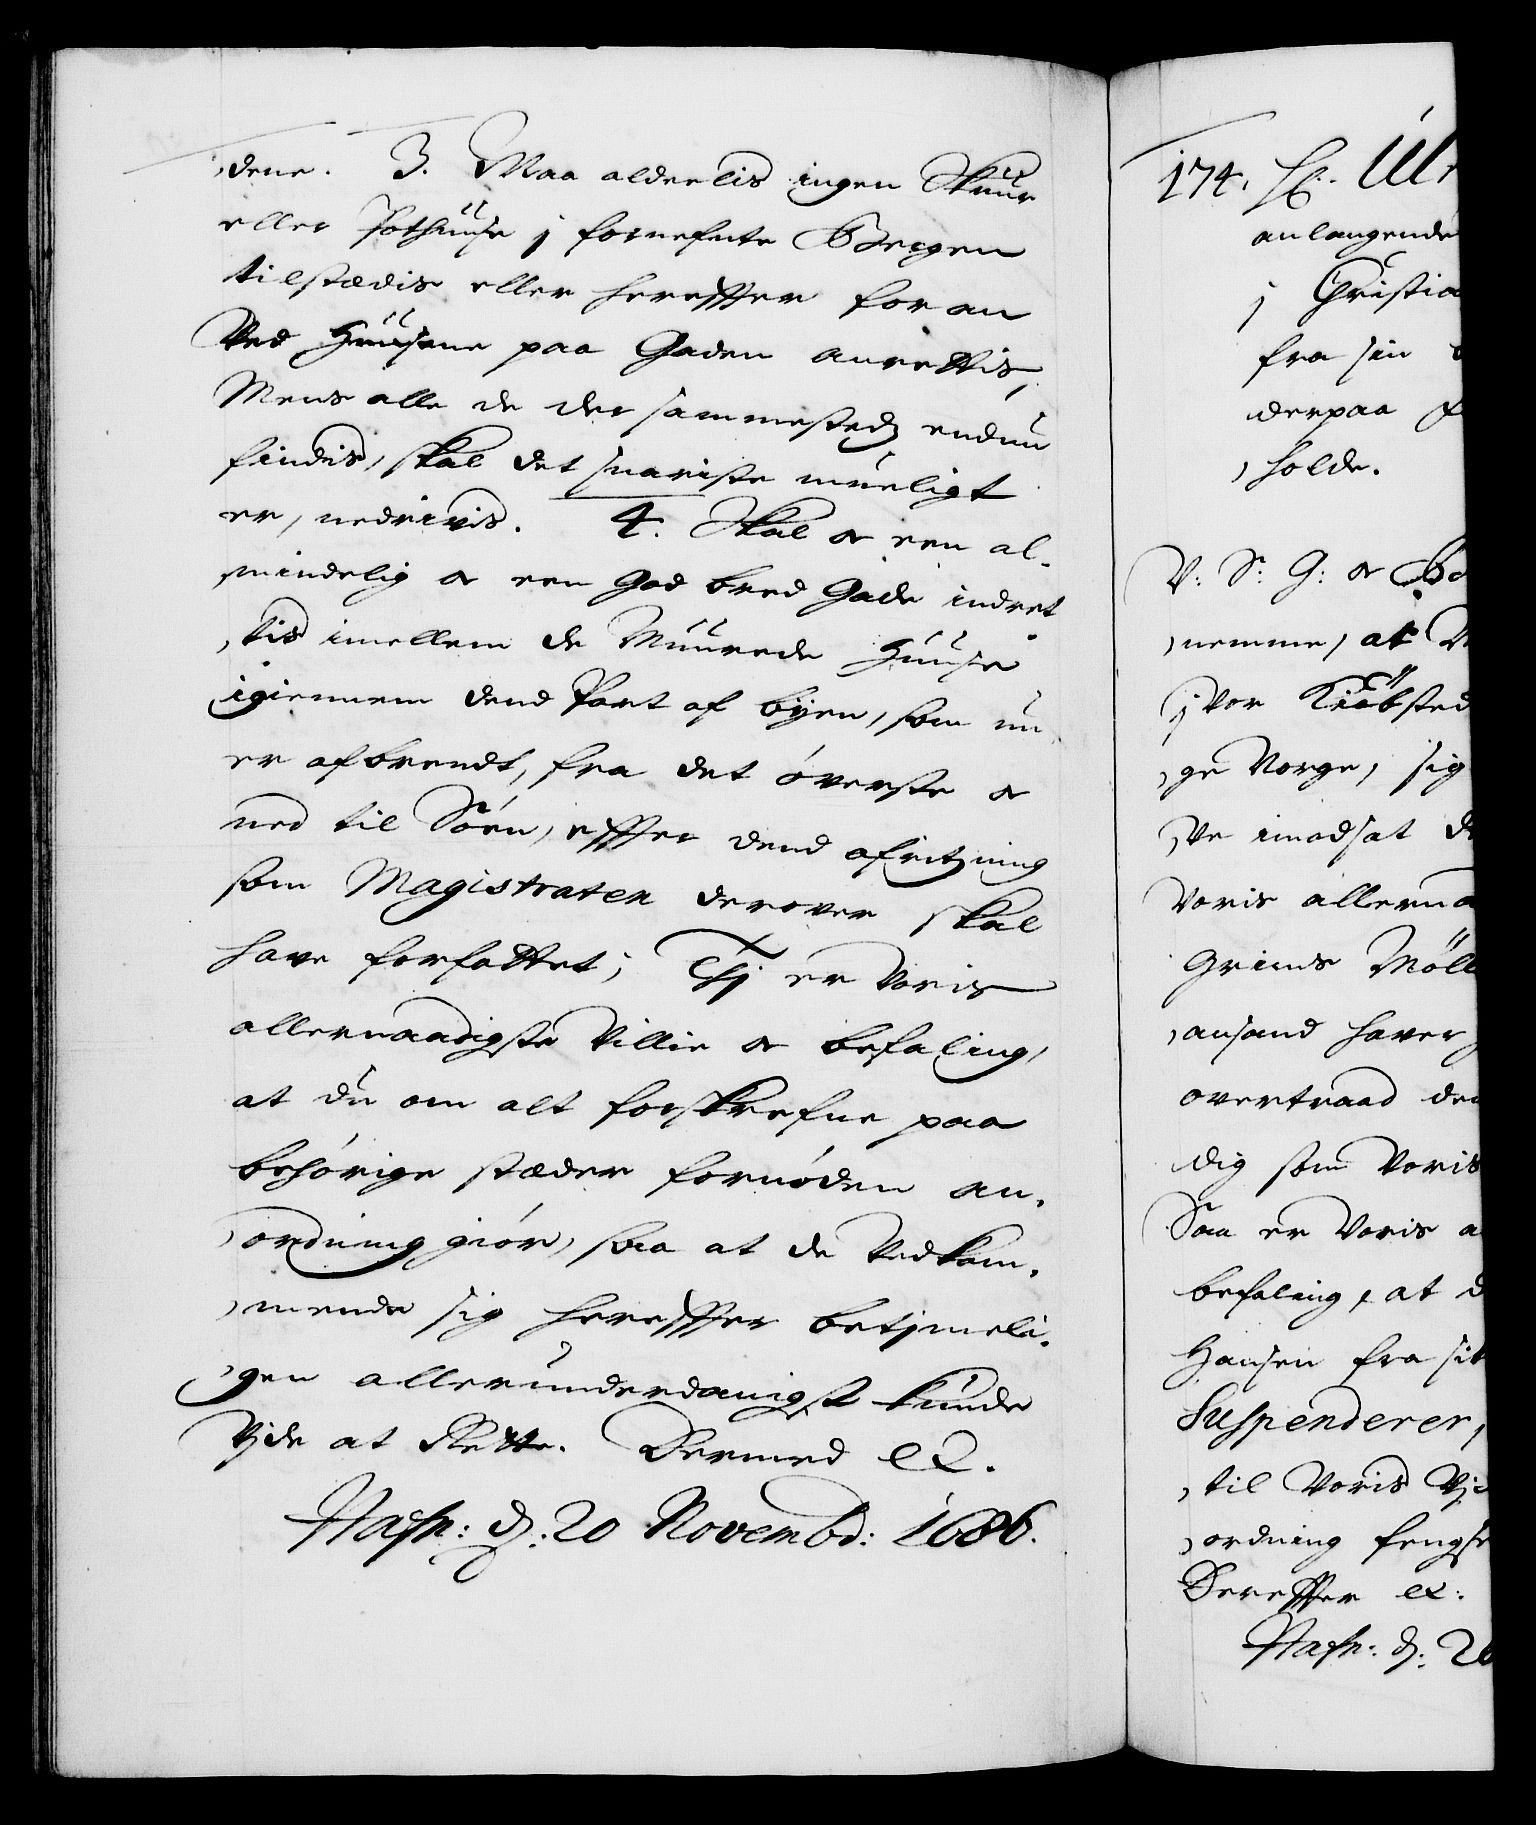 dene. 3. Maa alderlis ingen Skuur
eller Pothuuse j fornefnte Bergen
tilstædis eller herefter foran
Ved Huusene paa Gaden anrettis,
Mens alle de der sammestedz endnu
findis, skal det snariste mueligt
er, nedrivis. 4. Skal or een al-
mindelig or een God bred Gade indret
tis imellem de Muurede Huuse
igiennem dend Part af byen, som nu
er afbrendt, fra det överste or
ned til Söen, effter dend afritzning
som Magistraten derover skal
have forfattet; Thj er Voris
allernaadigste Villie or befaling,
at du om alt forskrefne paa
behörige stæder fornöden an-
ordning giör, saa at de Vedkom-
mende sig hereffter betjmeli-
gen allerunderdanigst kunde
Vjde at Rette. Dermed etc.
Hafn: d: 20 Novembd: 1686.
174. H. Ul
anlangende
j Christia
fra sin
derpaa
holde.
V: S: G: or
nemme, at
j Vor Kiöbsted
ge Norge, sig
Ve imodsat
Voris allerna
Griims Möll
ansand haver
overtraad den
dig som Voris
Saa er Voris a
befaling, at d
Hansen fra sit
Suspenderer,
til Voris
ordning fengs
Dereffter etc:
Hafn: d: 20